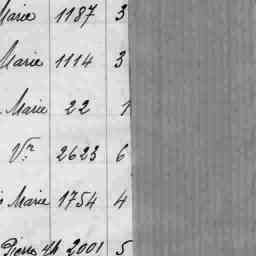 Marie 1187 3
Marie 1114 3
Marie 22 1
Vve 2623 6
Marie 1754 4
Pierre 2001 5